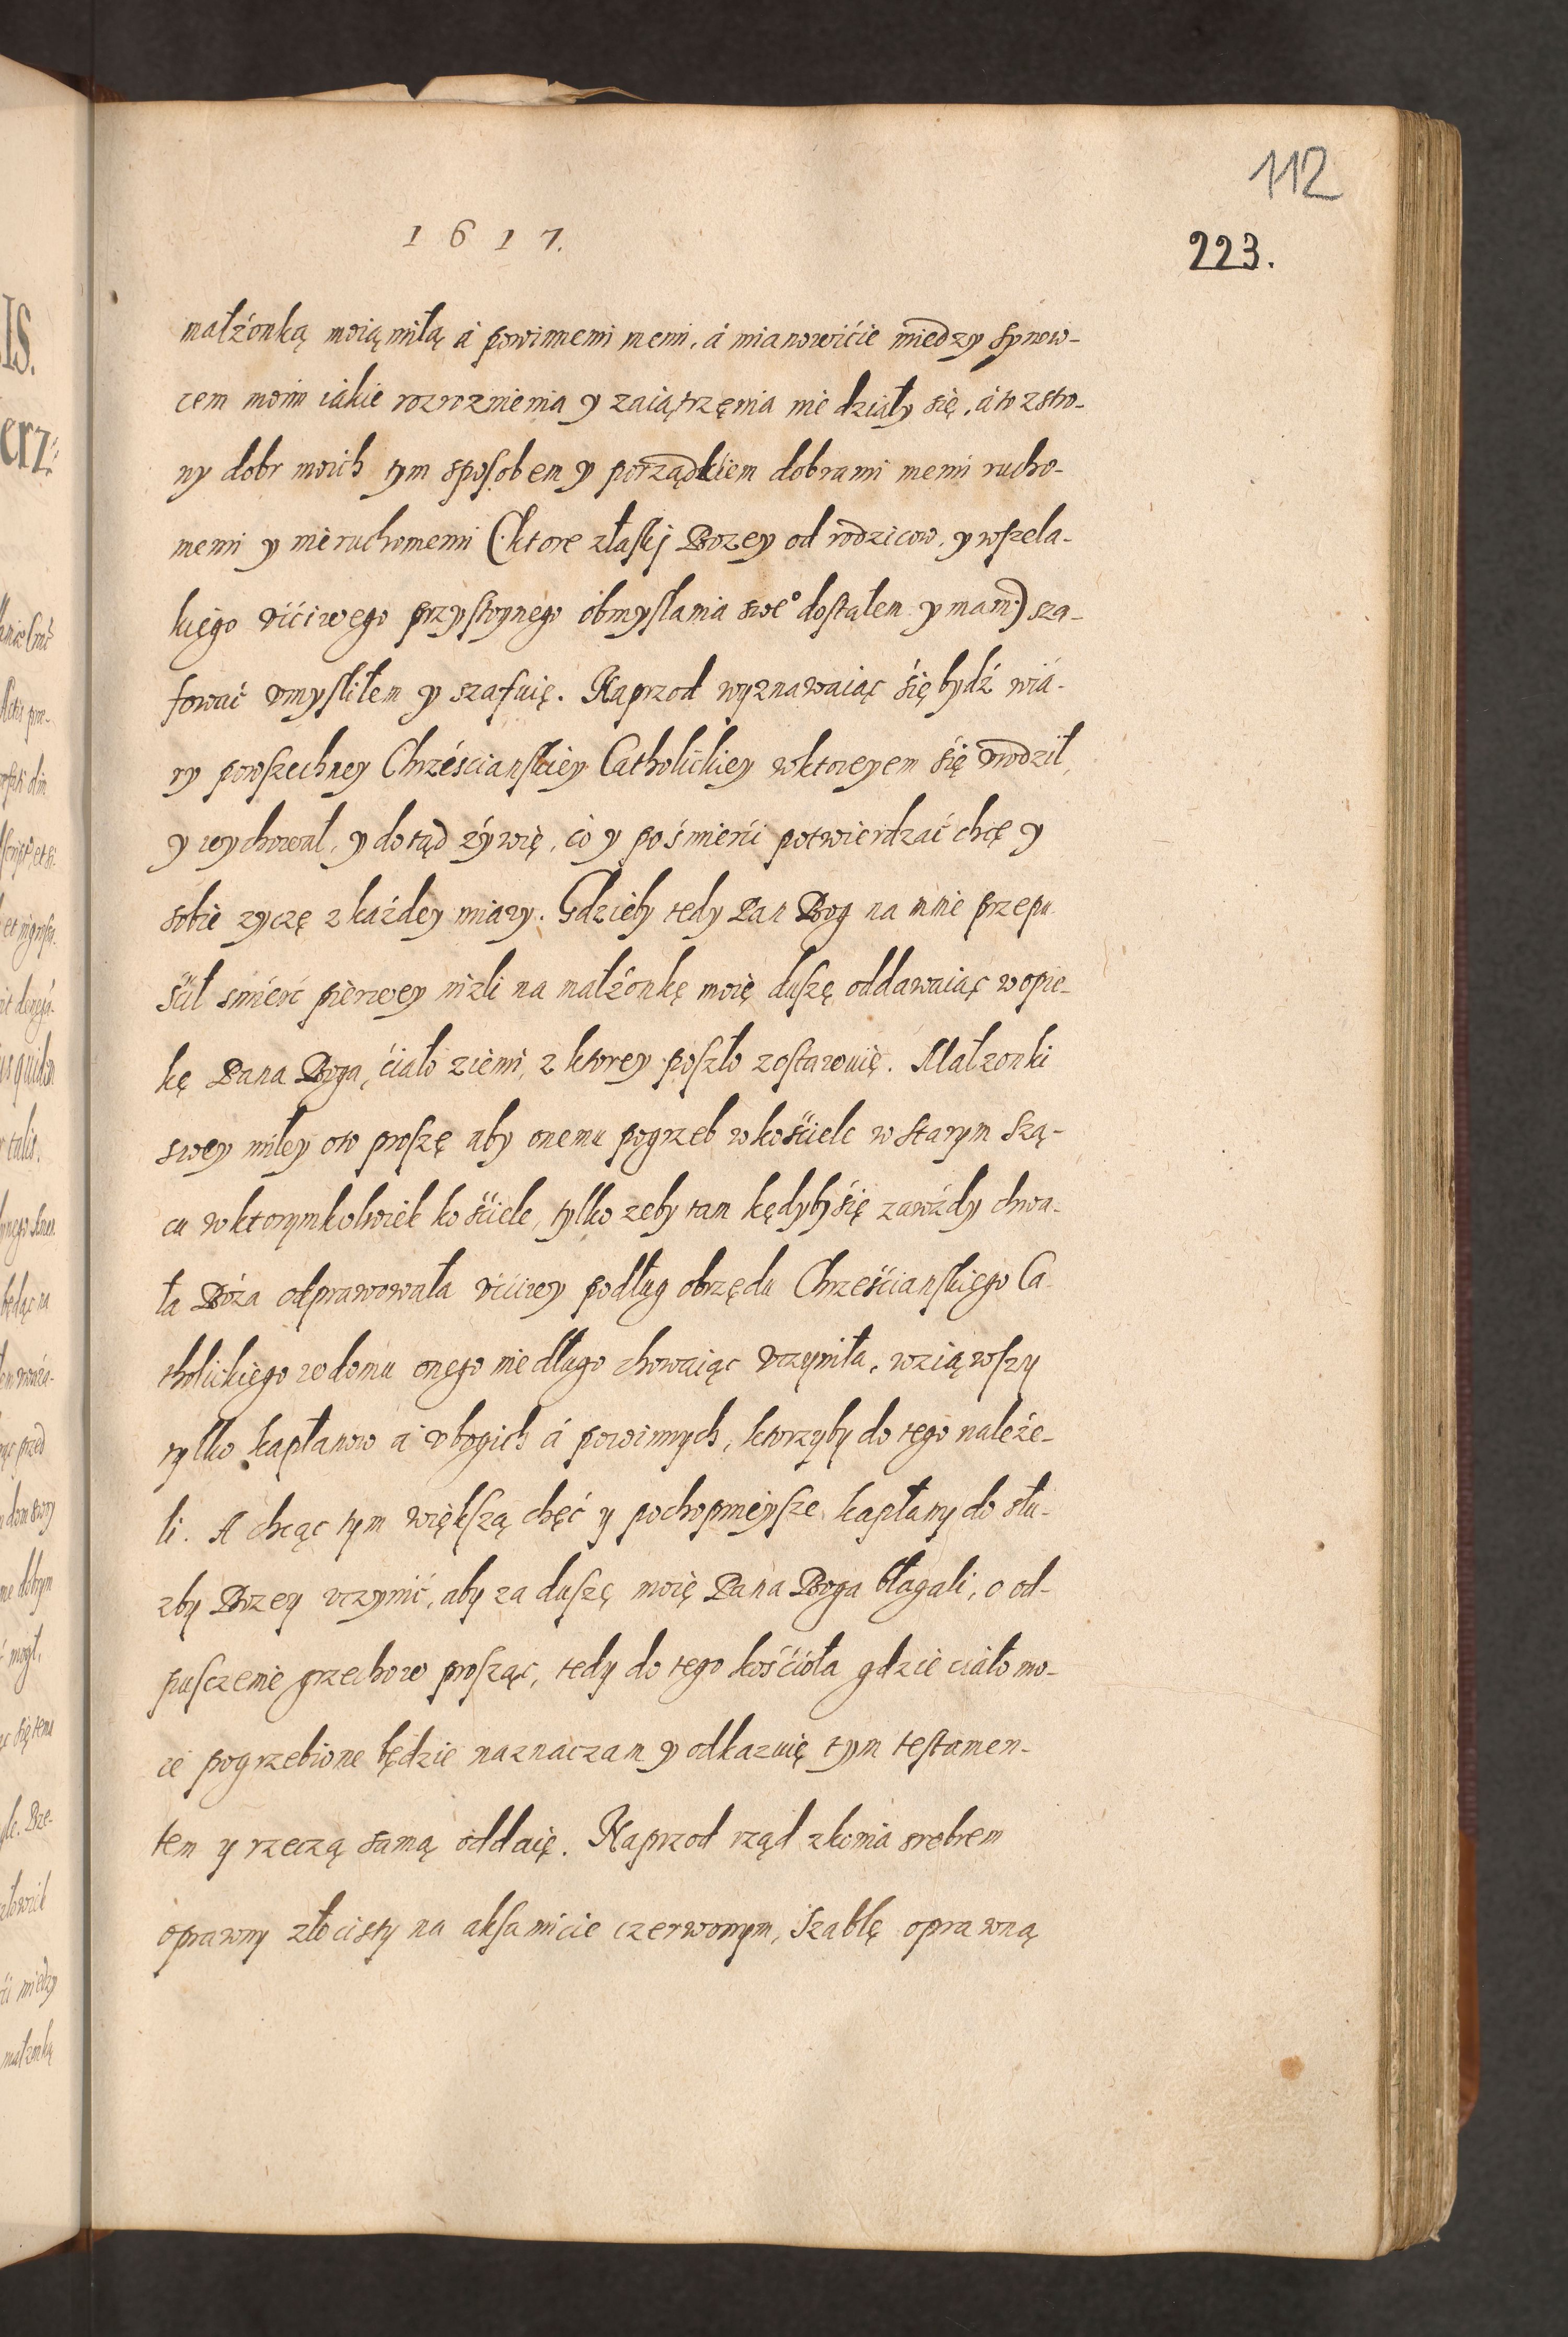 112
1617.
223.
małźonką moią miłą á powinnemi memi, á mianowićie miedzy synow-
cem moim iákie rozroznienia y zaiątrzęnia nie działy się, á to z stro-
ny dobr moich tym sposobem y porządkiem dobrami memi rucho-
memi y nieruchomemi (ktore złaskj Bozey od rodzicow, y wszela-
kięgo ućiwego przystoynego obmyslania sweº dostałem y mam) sza-
fować umysliłem y szafuię. Naprzod wyznawaiąc się bydź wiá-
ry powszechney Chrześcianskiey Catholickiey w ktoreyem się urodził,
y wychował, y dotąd żywię, co y po śmierći potwierdzać chcę y
sobie zyczę z każdey miary. Gdzieby tedy Pan Bog na mnie przepu
śćił smierć pierwey nizli na małżonkę moię duszę oddawaiąc w opie-
kę Pana Boga, ćiało ziemi, z ktorey poszło zostawuię. Małzonki
swey miłey oto proszę aby onemu pogrzeb w kośćiele w starym Są-
cu w ktorymkolwiek kośćiele, tylko zeby tam kędyby się zawżdy chwa-
ła Boża odprawowała ućiwy podług obrzędu Chrześćianskięgo Ca-
tholickięgo w domu onęgo niedługo chowaiąc uczyniła, wziąwszy
tylko kapłanow a ubogich á powinnych, ktorzyby do tęgo należe-
li. A chcąc tym większą chęć y pochopnieysze kapłany do słu-
zby Bozey uczynić, aby za duszę moię Pana Boga błagali, o od-
puszczenie grzechow prosząc, tedy do tego kośćioła gdzie ciało mo-
ie pogrzebione będzie naznaczam y odkazuię tym testamen-
tem y rzeczą samą oddaię. Naprzod rząd z konia srebrem
oprawny złocisty na aksamicie czerwonym, szablę oprawną